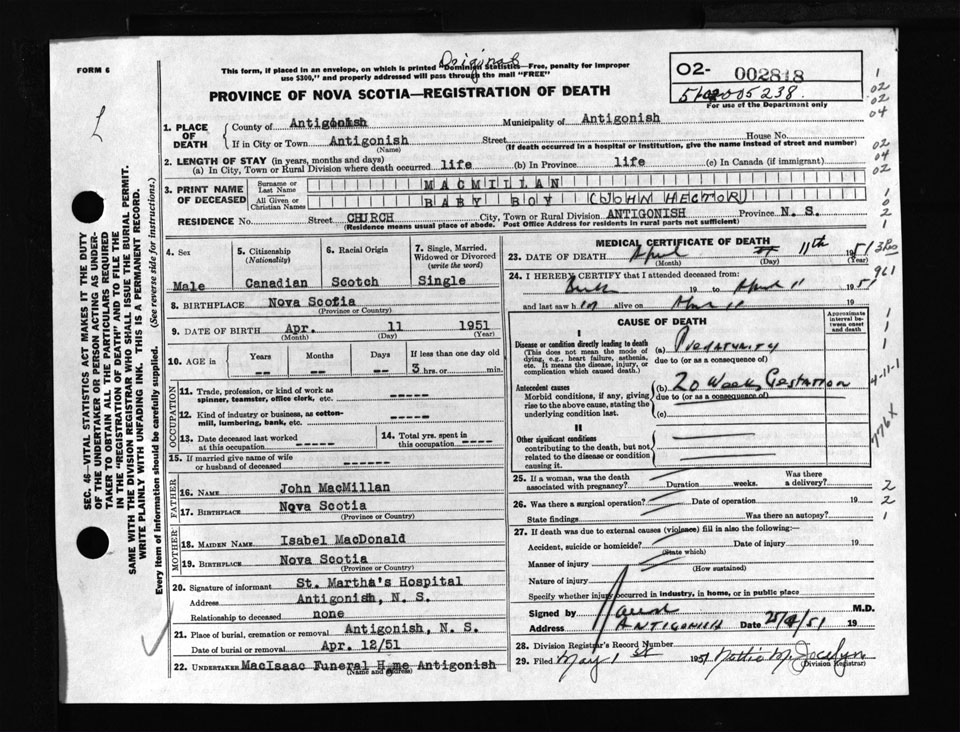 FORM 6
Original
This form, if placed in an envelope, on which is printed "Dominion Statistics—Free, penalty for improper
use $300," and properly addressed will pass through the mail "FREE"
PROVINCE OF NOVA SCOTIA—REGISTRATION OF DEATH
02- 002818
For use of the Department only
1. PLACE OF DEATH { County of Antigonish Municipality of Antigonish
If in City or Town Antigonish Street House No.
(Name) (If death occurred in a hospital or institution, give the name instead of street and number)
2. LENGTH OF STAY (in years, months and days)
(a) In City, Town or Rural Division where death occurred life (b) In Province life (c) In Canada (if immigrant)
3. PRINT NAME OF DECEASED { Surname or Last Name MACMILLAN
All Given or Christian Names BABY BOY (JOHN HECTOR)
RESIDENCE No. Street CHURCH City, Town or Rural Division ANTIGONISH Province N. S.
(Residence means usual place of abode. Post Office Address for residents in rural parts not sufficient)
4. Sex Male
5. Citizenship (Nationality) Canadian
6. Racial Origin Scotch
7. Single, Married, Widowed or Divorced (write the word) Single
8. BIRTHPLACE Nova Scotia
(Province or Country)
9. DATE OF BIRTH Apr. 11 1951
(Month) (Day) (Year)
10. AGE in { Years Months Days If less than one day old
-- -- -- 3 hrs. or min.
OCCUPATION
11. Trade, profession, or kind of work as spinner, teamster, office clerk, etc. -----
12. Kind of industry or business, as cotton-mill, lumbering, bank, etc. -----
13. Date deceased last worked at this occupation -----
14. Total yrs. spent in this occupation -----
15. If married give name of wife or husband of deceased ------
FATHER
16. NAME John MacMillan
17. BIRTHPLACE Nova Scotia
(Province or Country)
MOTHER
18. MAIDEN NAME Isabel MacDonald
19. BIRTHPLACE Nova Scotia
(Province or Country)
20. Signature of informant St. Martha's Hospital
Address Antigonish, N. S.
Relationship to deceased none
21. Place of burial, cremation or removal Antigonish, N. S.
Date of burial or removal Apr. 12/51
22. UNDERTAKER MacIsaac Funeral Home Antigonish
(Name and address)
MEDICAL CERTIFICATE OF DEATH
23. DATE OF DEATH April 11th 1951
(Month) (Day) (Year)
24. I HEREBY CERTIFY that I attended deceased from:
Birth 19 to April 11 1951
and last saw him alive on April 11 19
CAUSE OF DEATH
Approximate interval between onset and death
I
Disease or condition directly leading to death
(This does not mean the mode of dying, e.g., heart failure, asthenia, etc. It means the disease, injury, or complication which caused death.)
(a) Prematurity
due to (or as a consequence of)
Antecedent causes
Morbid conditions, if any, giving rise to the above cause, stating the underlying condition last.
(b) 20 Weeks Gestation
due to (or as a consequence of)
(c)
II
Other significant conditions
contributing to the death, but not related to the disease or condition causing it.
25. If a woman, was the death associated with pregnancy? Duration weeks. Was there a delivery?
26. Was there a surgical operation? Date of operation 19
State findings Was there an autopsy?
27. If death was due to external causes (violence) fill in also the following:—
Accident, suicide or homicide? Date of injury 19
(State which)
Manner of injury
(How sustained)
Nature of injury
Specify whether injury occurred in industry, in home, or in public place
Signed by M.D.
Address ANTIGONISH Date 25/4/51 19
28. Division Registrar's Record Number
29. Filed May 1st 1951
(Division Registrar)
SEC. 46—VITAL STATISTICS ACT MAKES IT THE DUTY
OF THE UNDERTAKER OR PERSON ACTING AS UNDER-
TAKER TO OBTAIN ALL THE PARTICULARS REQUIRED
IN THE "REGISTRATION OF DEATH" AND TO FILE THE
SAME WITH THE DIVISION REGISTRAR WHO SHALL ISSUE THE BURIAL PERMIT.
WRITE PLAINLY WITH UNFADING INK. THIS IS A PERMANENT RECORD.
Every item of information should be carefully supplied. (See reverse side for instructions.)
1
02
02
04
02
04
02
1
0
2
1
961
1
1
1
4-11-1
776X
2
2
1